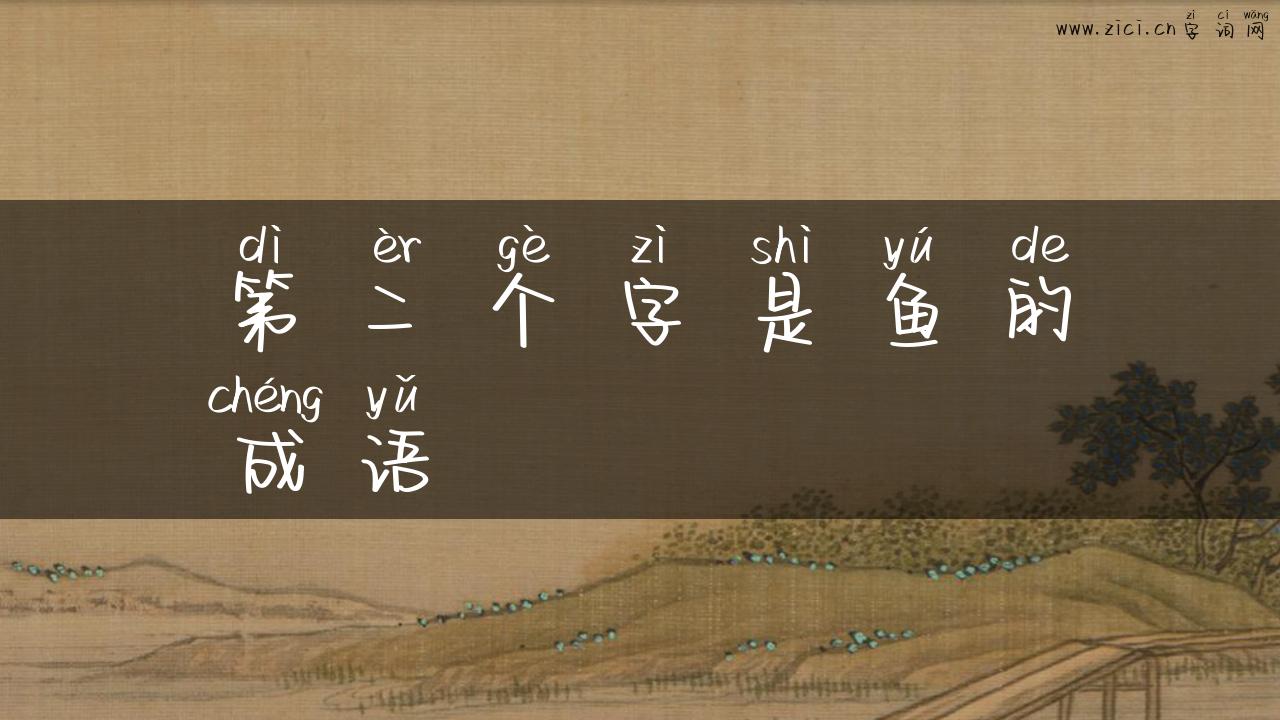 zì cí wǎng
www.zici.cn字词网
dì èr gè zì shì yú de
第二个字是鱼的
chéng yǔ
成语